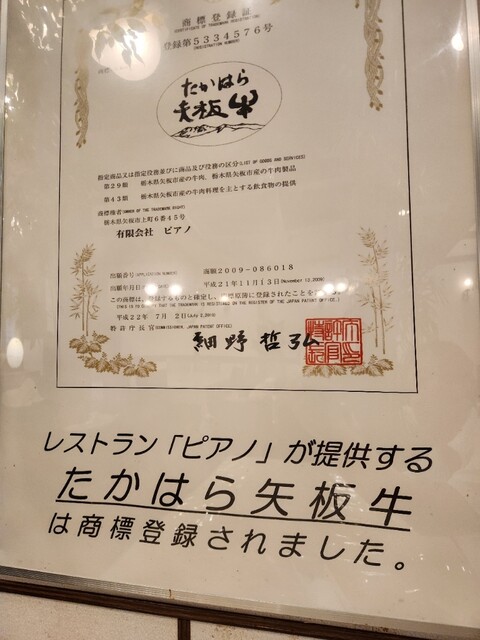 商標登録証
(CERTIFICATE OF TRADEMARK REGISTRATION)
登録第5334576号
(REGISTRATION NUMBER)
たかはら
矢板牛
指定商品又は指定役務並びに商品及び役務の区分(LIST OF GOODS AND SERVICES)
第29類 栃木県矢板市産の牛肉、栃木県矢板市産の牛肉製品
第43類 栃木県矢板市産の牛肉料理を主とする飲食物の提供
商標権者(OWNER OF THE TRADEMARK RIGHT)
栃木県矢板市上町6番45号
有限会社 ピアノ
出願番号(APPLICATION NUMBER) 商願2009-086018
出願年月日 平成21年11月13日(November 13,2009)
この商標は、登録するものと確定し、商標原簿に登録されたことを
(THIS IS TO CERTIFY THAT THE TRADEMARK IS REGISTERED ON THE REGISTER OF THE JAPAN PATENT OFFICE.)
平成22年 7月 2日(July 2,2010)
特許庁長官(COMMISSIONER, JAPAN PATENT OFFICE)
細野哲弘
レストラン「ピアノ」が提供する
たかはら矢板牛
は商標登録されました。